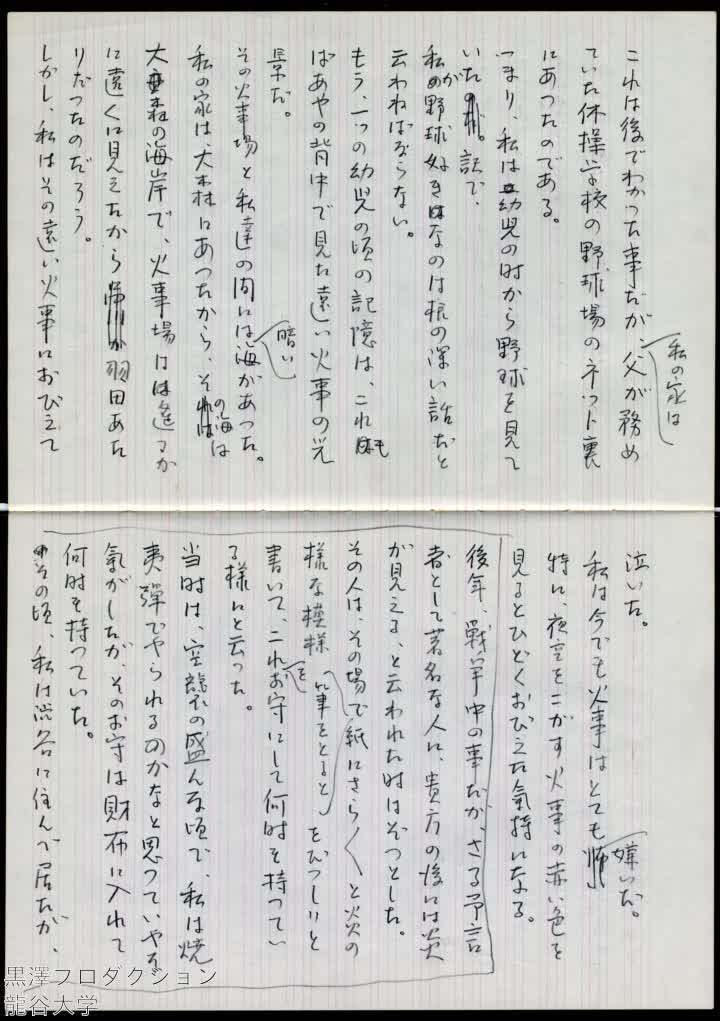 これは後でわかった事だが、私の家は父が務め
ていた体操学校の野球場のネット裏
にあつたのである。
つまり、私は幼児の時から野球を見て
いた。訳で、
私が野球好きなのは根の深い話だと
云わねばならない。
もう、一つの幼児の頃の記憶は、これも
ばあやの背中で見た遠い火事の光
景だ。
その火事場と私達の間には暗い海があつた。
私の家は、大森にあつたから、その海は
大森の海岸で、火事場は遙るか
に遠くに見えたから羽田あた
りだつたのだろう。
しかし、私はその遠い火事におびえて
泣いた。
私は今でも火事はとても嫌いだ。
特に、夜空をこがす火事の赤い色を
見るとひどくおびえた氣持になる。
後年、戦争中の事だが、さる予言
者として著名な人に、貴方の後には炎
が見える、と云われた時はぞつとした。
その人は、その場で筆をとると紙にさら〱と炎の
様な模様をびつしりと
書いて、これをお守にして何時も持つてい
る様にと云つた。
当時は、空襲の盛んな頃で、私は焼
夷彈でやられるのかなと思つていやな
氣がしたが、そのお守は財布に入れて
何時も持つていた。
その頃、私は渋谷に住んで居たが、
黒澤プロダクション
龍谷大学